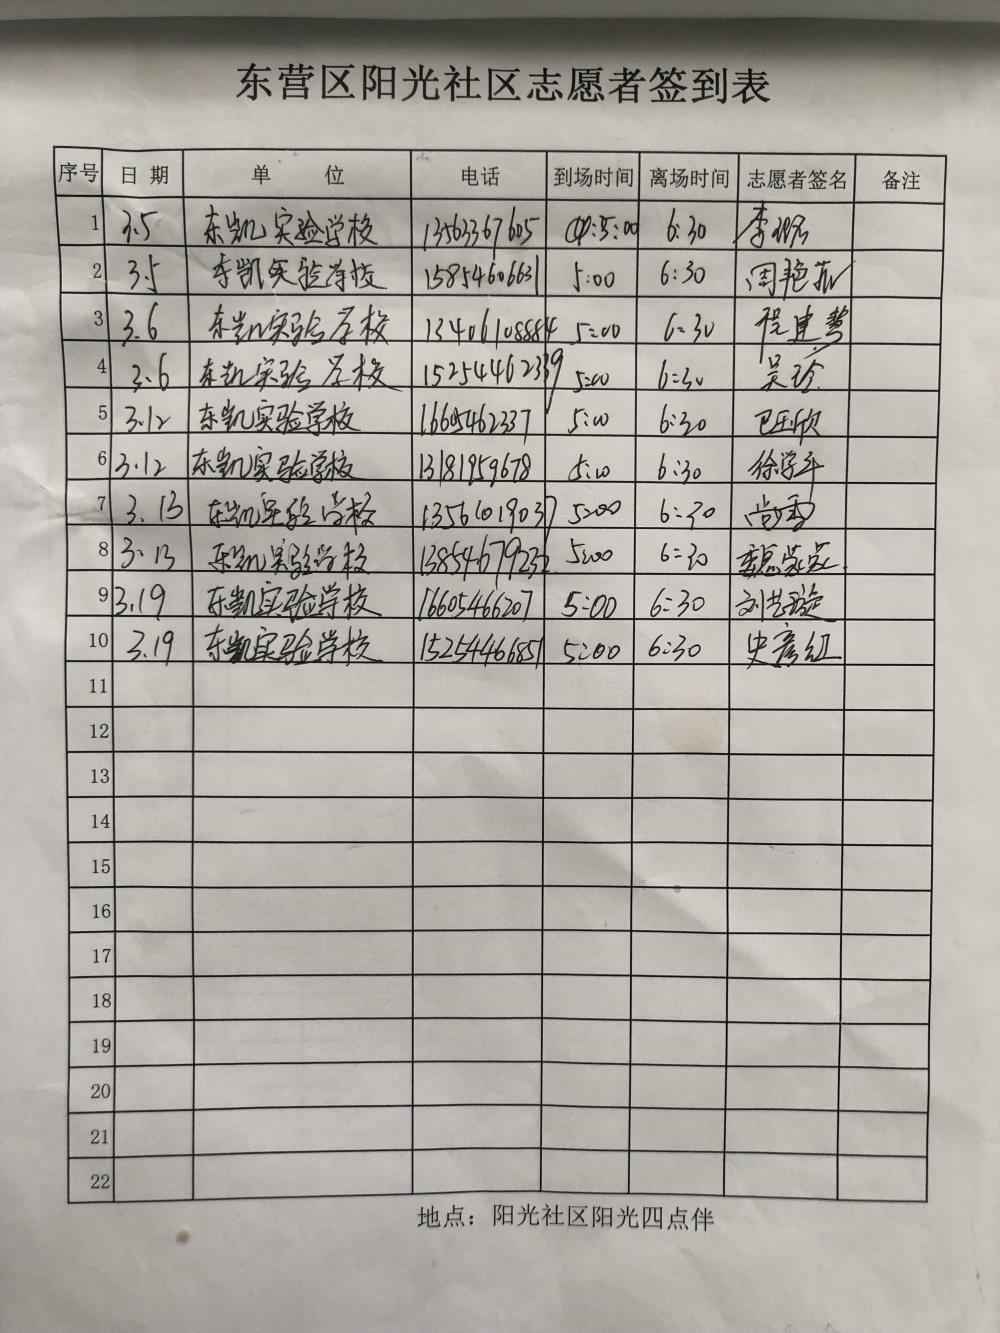 东营区阳光社区志愿者签到表
序号 日期 单位 电话 到场时间 离场时间 志愿者签名 备注
1 3.5 东凯实验学校 13563367605 5:00 6:30 李
2 3.5 东凯实验学校 15854606631 5:00 6:30 周艳茹
3 3.6 东凯实验学校 13406108884 5:00 6:30 程建慧
4 3.6 东凯实验学校 15254462339 5:00 6:30 吴玲
5 3.12 东凯实验学校 16605462337 5:00 6:30 欣
6 3.12 东凯实验学校 13181959678 5:00 6:30 徐学斗
7 3.13 东凯实验学校 13566019037 5:00 6:30 尚雪
8 3.13 东凯实验学校 13854679232 5:00 6:30
9 3.19 东凯实验学校 16605466207 5:00 6:30 刘艺璇
10 3.19 东凯实验学校 15254446851 5:00 6:30 史彦红
11
12
13
14
15
16
17
18
19
20
21
22
地点：阳光社区阳光四点伴